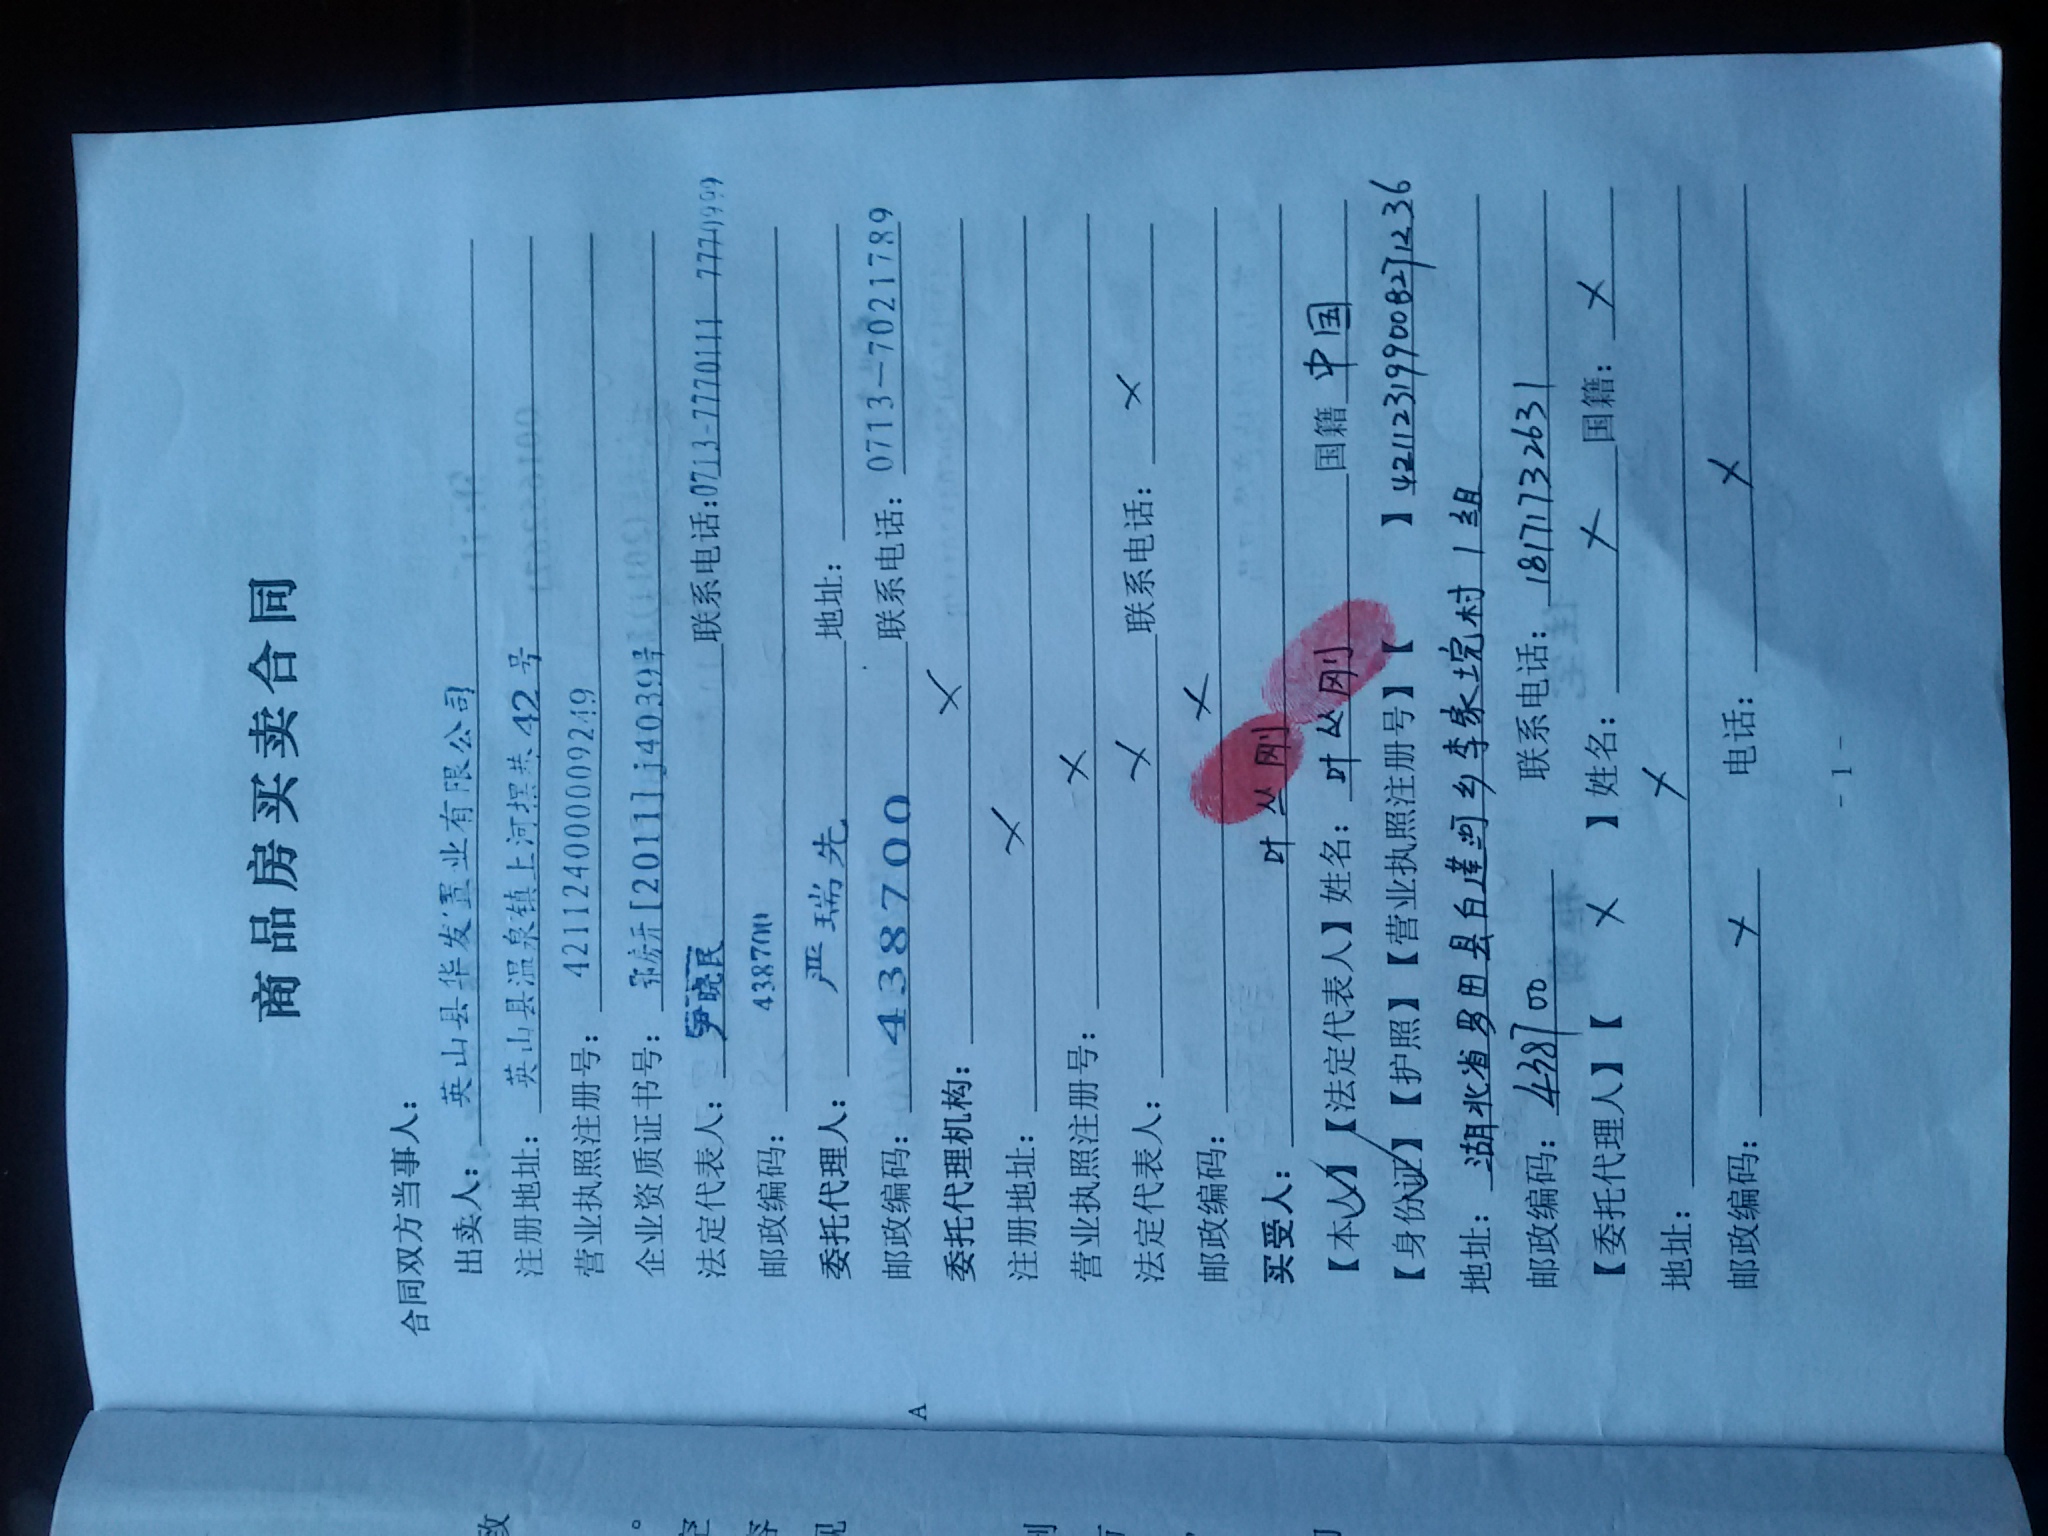 商品房买卖合同
合同双方当事人：
出卖人：英山县华发置业有限公司
注册地址：英山县温泉镇上河 42号
营业执照注册号：421124000009249
企业资质证书号：鄂房开[2011]j4039号
法定代表人：尹晓民 联系电话：0713-7770111 7770999
邮政编码：438700
委托代理人：严瑞先 地址：
邮政编码：438700 联系电话：0713-7021789
委托代理机构： X
注册地址： X
营业执照注册号： X
法定代表人： X 联系电话： X
邮政编码： X
买受人：叶丛刚
【本人】【法定代表人】姓名：叶丛刚 国籍 中国
【身份证】【护照】【营业执照注册号】【 】421123199008271236
地址：湖北省罗田县白莲河乡李家垸村1组
邮政编码：438700 联系电话：18171732631
【委托代理人】【 X 】姓名： X 国籍： X
地址： X
邮政编码： X 电话： X
- 1 -
A
致
。